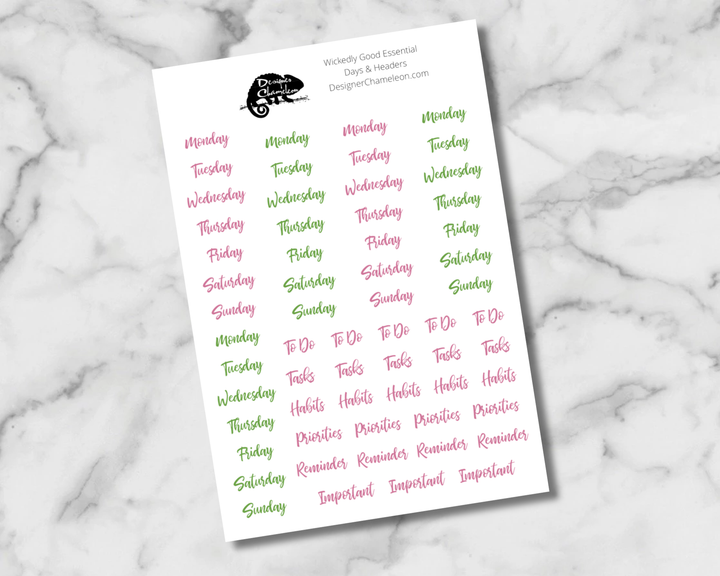 Designer
Chameleon
Wickedly Good Essential
Days & Headers
DesignerChameleon.com
Monday Monday Monday Monday
Tuesday Tuesday Tuesday Tuesday
Wednesday Wednesday Wednesday Wednesday
Thursday Thursday Thursday Thursday
Friday Friday Friday Friday
Saturday Saturday Saturday Saturday
Sunday Sunday Sunday Sunday
Monday To Do To Do To Do To Do To Do
Tuesday Tasks Tasks Tasks Tasks Tasks
Wednesday Habits Habits Habits Habits Habits
Thursday Priorities Priorities Priorities Priorities
Friday Reminder Reminder Reminder Reminder
Saturday Important Important Important
Sunday